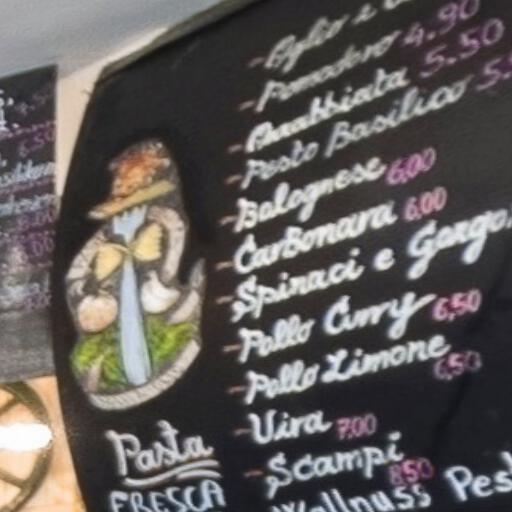 - Aglio e
- Pomodoro 4.90
- Arrabbiata 5.50
- Pesto Basilico
- Bolognese 6,00
- Carbonara 6,00
- Spinaci e Gorgo
- Pollo Curry 6,50
- Pollo Limone 6,50
- Vira 7,00
- Scampi 8,50
Wallnuss Pest
Pasta
FRESCA